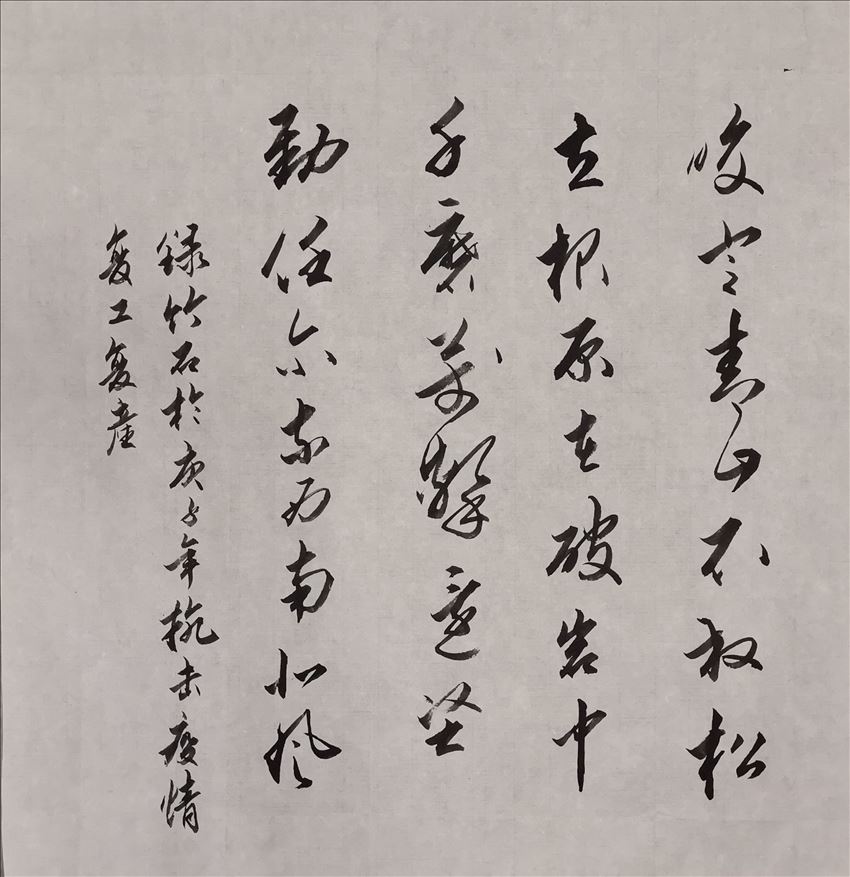 咬定青山不放松
立根原在破岩中
千磨萬擊還坚
勁任尔东西南北风
録竹石於庚子年抗击疫情
复工复産